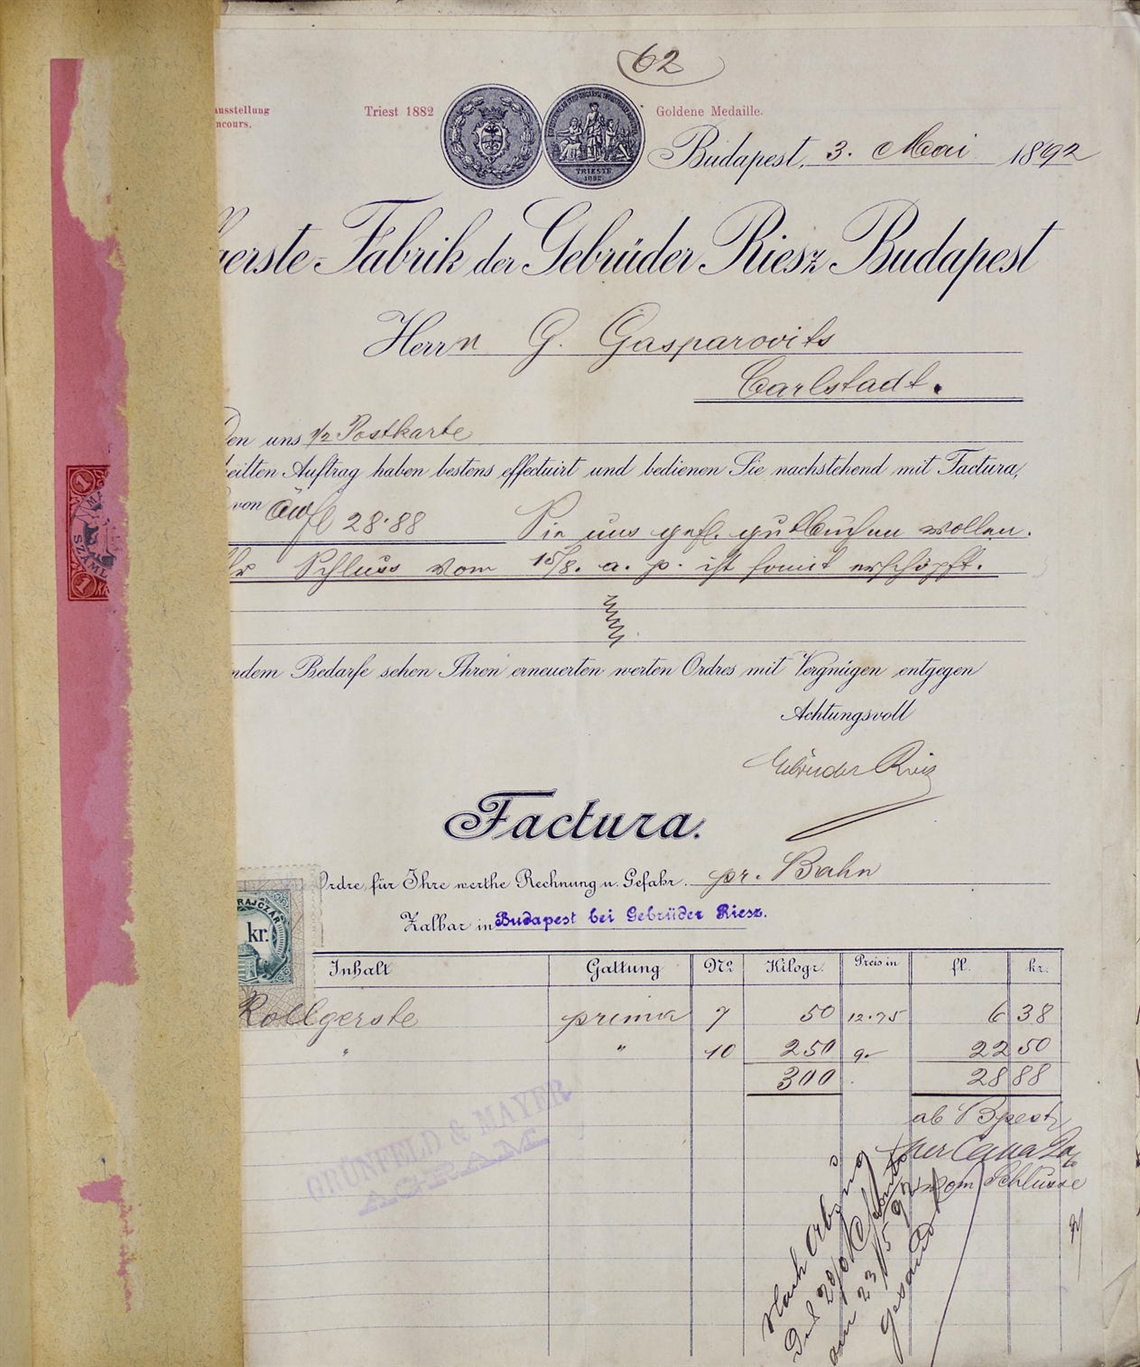 62
Triest 1882
Goldene Medaille.
TRIESTE
1882
Budapest, 3. Mai 1892
gerste-Fabrik der Gebrüder Riesz Budapest
Herrn G. Gasparovits
Carlstadt.
den uns 1/2 Postkarte
theilten Auftrag haben bestens effectuirt und bedienen Sie nachstehend mit Factura,
von öwfl 28·88 Sie uns gefl. gutbuchen wollen.
Ihr Schluss vom 15/8. a. p. ist somit erschöpft.
ndem Bedarfe sehen Ihren erneuerten werten Ordres mit Vergnügen entgegen
Achtungsvoll
Gebrüder Riesz
Factura.
Ordre, für Ihre werthe Rechnung u. Gefahr. pr. Bahn
Zalbar in Budapest bei Gebrüder Riesz.
kr.
Inhalt Gattung No. Kilogr. Preis in fl. kr.
Rollgerste prima 7 50 12.75 6 38
" " 10 250 9- 22 50
300 28 88
ab Bpest
per Cassa
vom Schlusse
GRÜNFELD & MAYER
AGRAM
Nach Abzug
am 23/5 92
gesandt